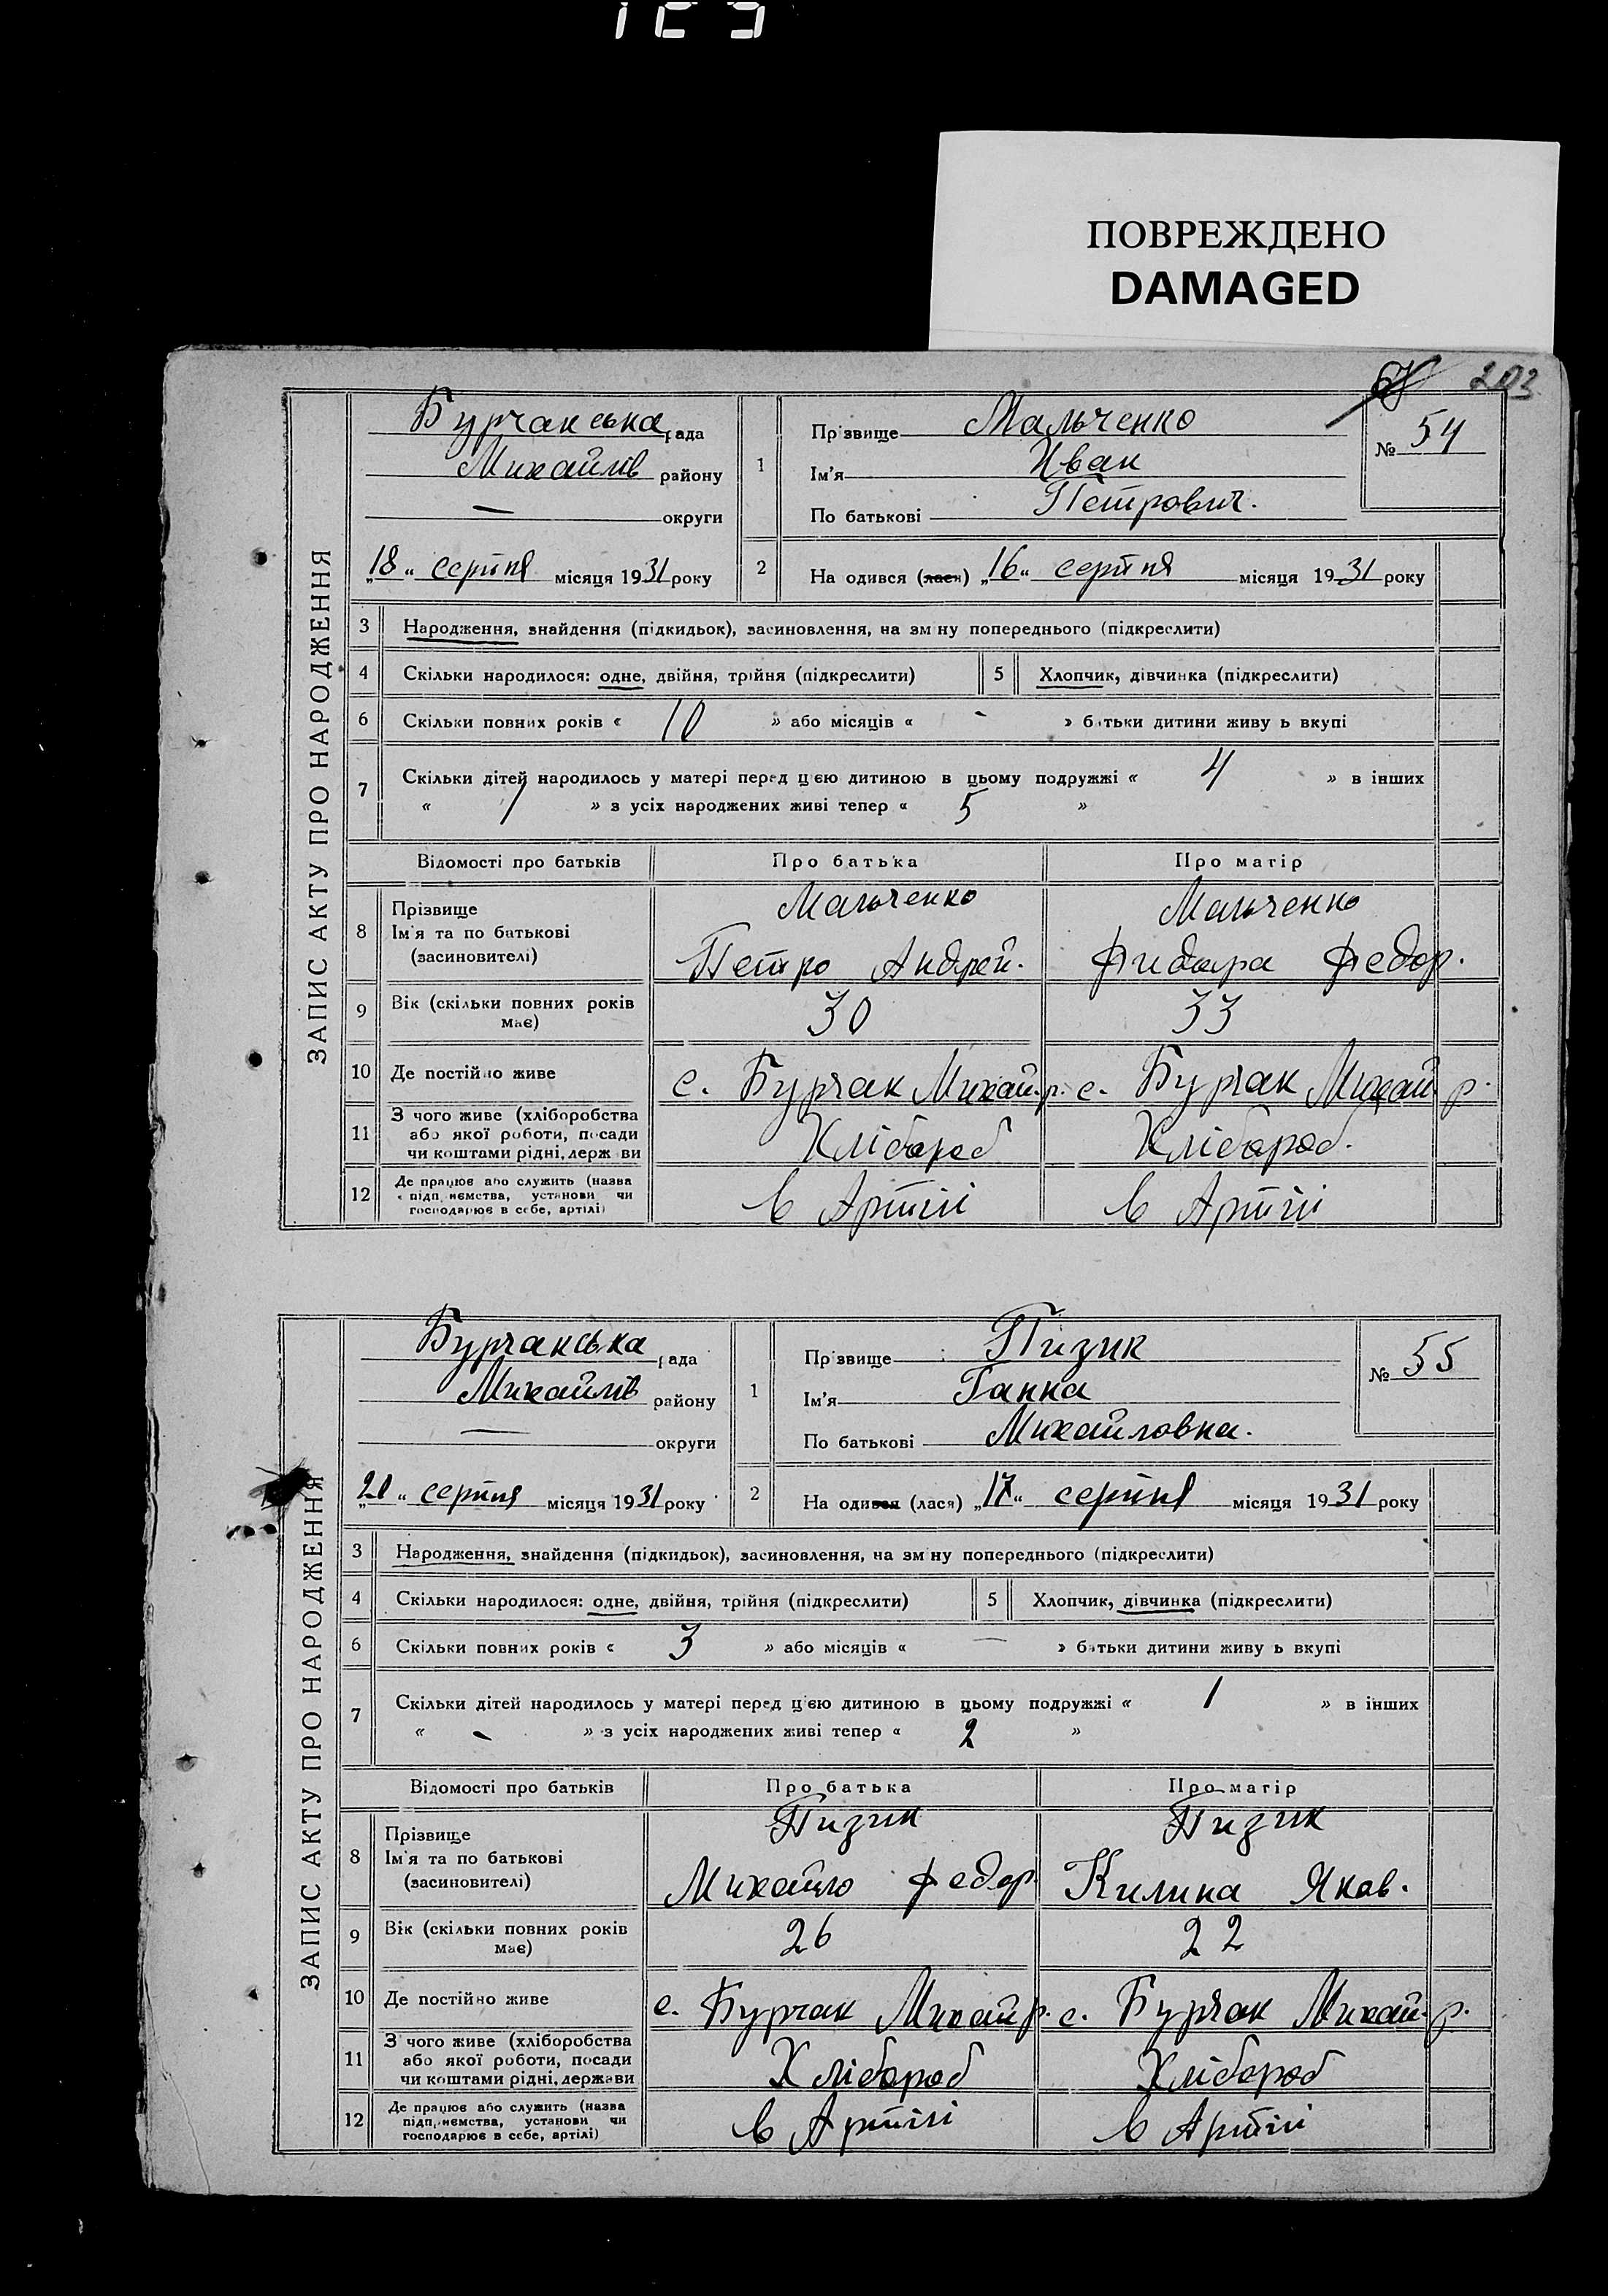 ПОВРЕЖДЕНО
DAMAGED
203
ЗАПИС АКТУ ПРО НАРОДЖЕННЯ
Бурчакська рада
Михайлів району
— округи
„18“ серпня місяця 1931 року
1
Прізвище Мальченко
Ім'я Иван
По батькові Петрович.
№ 54
2 На одився (лася) „16“ серпня місяця 1931 року
3 Народження, знайдення (підкидьок), засиновлення, на зм ну попереднього (підкреслити)
4 Скільки народилося: одне, двійня, трійня (підкреслити) 5 Хлопчик, дівчинка (підкреслити)
6 Скільки повних років « 10 » або місяців « - » батьки дитини живу ь вкупі
7 Скільки дітей народилось у матері перед цією дитиною в цьому подружжі « 4 » в інших
« 1 » з усіх народжених живі тепер « 5 »
Відомості про батьків Про батька Про матір
8 Прізвище
Ім'я та по батькові
(засиновителі)
Мальченко Мальченко
Петро Андрей. Фидора Федор.
9 Вік (скільки повних років
має)
30 33
10 Де постійно живе с. Бурчак Михай.р. с. Бурчак Михай р.
11 З чого живе (хліборобства
або якої роботи, посади
чи коштами рідні, держ ви
Хлібороб Хлібороб.
12 Де працює або служить (назва
підп иємства, установи чи
господарює в себе, артілі)
в Артілі в Артілі
ЗАПИС АКТУ ПРО НАРОДЖЕННЯ
Бурчакська рада
Михайлів району
— округи
„20“ серпня місяця 1931 року
1
Прізвище Пизик
Ім'я Ганна
По батькові Михайловна.
№ 55
2 На одився (лася) „17“ серпня місяця 1931 року
3 Народження, знайдення (підкидьок), засиновлення, на зм ну попереднього (підкреслити)
4 Скільки народилося: одне, двійня, трійня (підкреслити) 5 Хлопчик, дівчинка (підкреслити)
6 Скільки повних років « 3 » або місяців « — » батьки дитини живу ь вкупі
7 Скільки дітей народилось у матері перед цією дитиною в цьому подружжі « 1 » в інших
« - » з усіх народжених живі тепер « 2 »
Відомості про батьків Про батька Про матір
8 Прізвище
Ім'я та по батькові
(засиновителі)
Пизик Пизик
Михайло Федор. Килина Яков.
9 Вік (скільки повних років
має)
26 22
10 Де постійно живе с. Бурчак Михай р. с. Бурчак Михай. р.
11 З чого живе (хліборобства
або якої роботи, посади
чи коштами рідні, держави
Хлібороб Хлібороб
12 Де працює або служить (назва
підп иємства, установи чи
господарює в себе, артілі)
в Артілі в Артілі